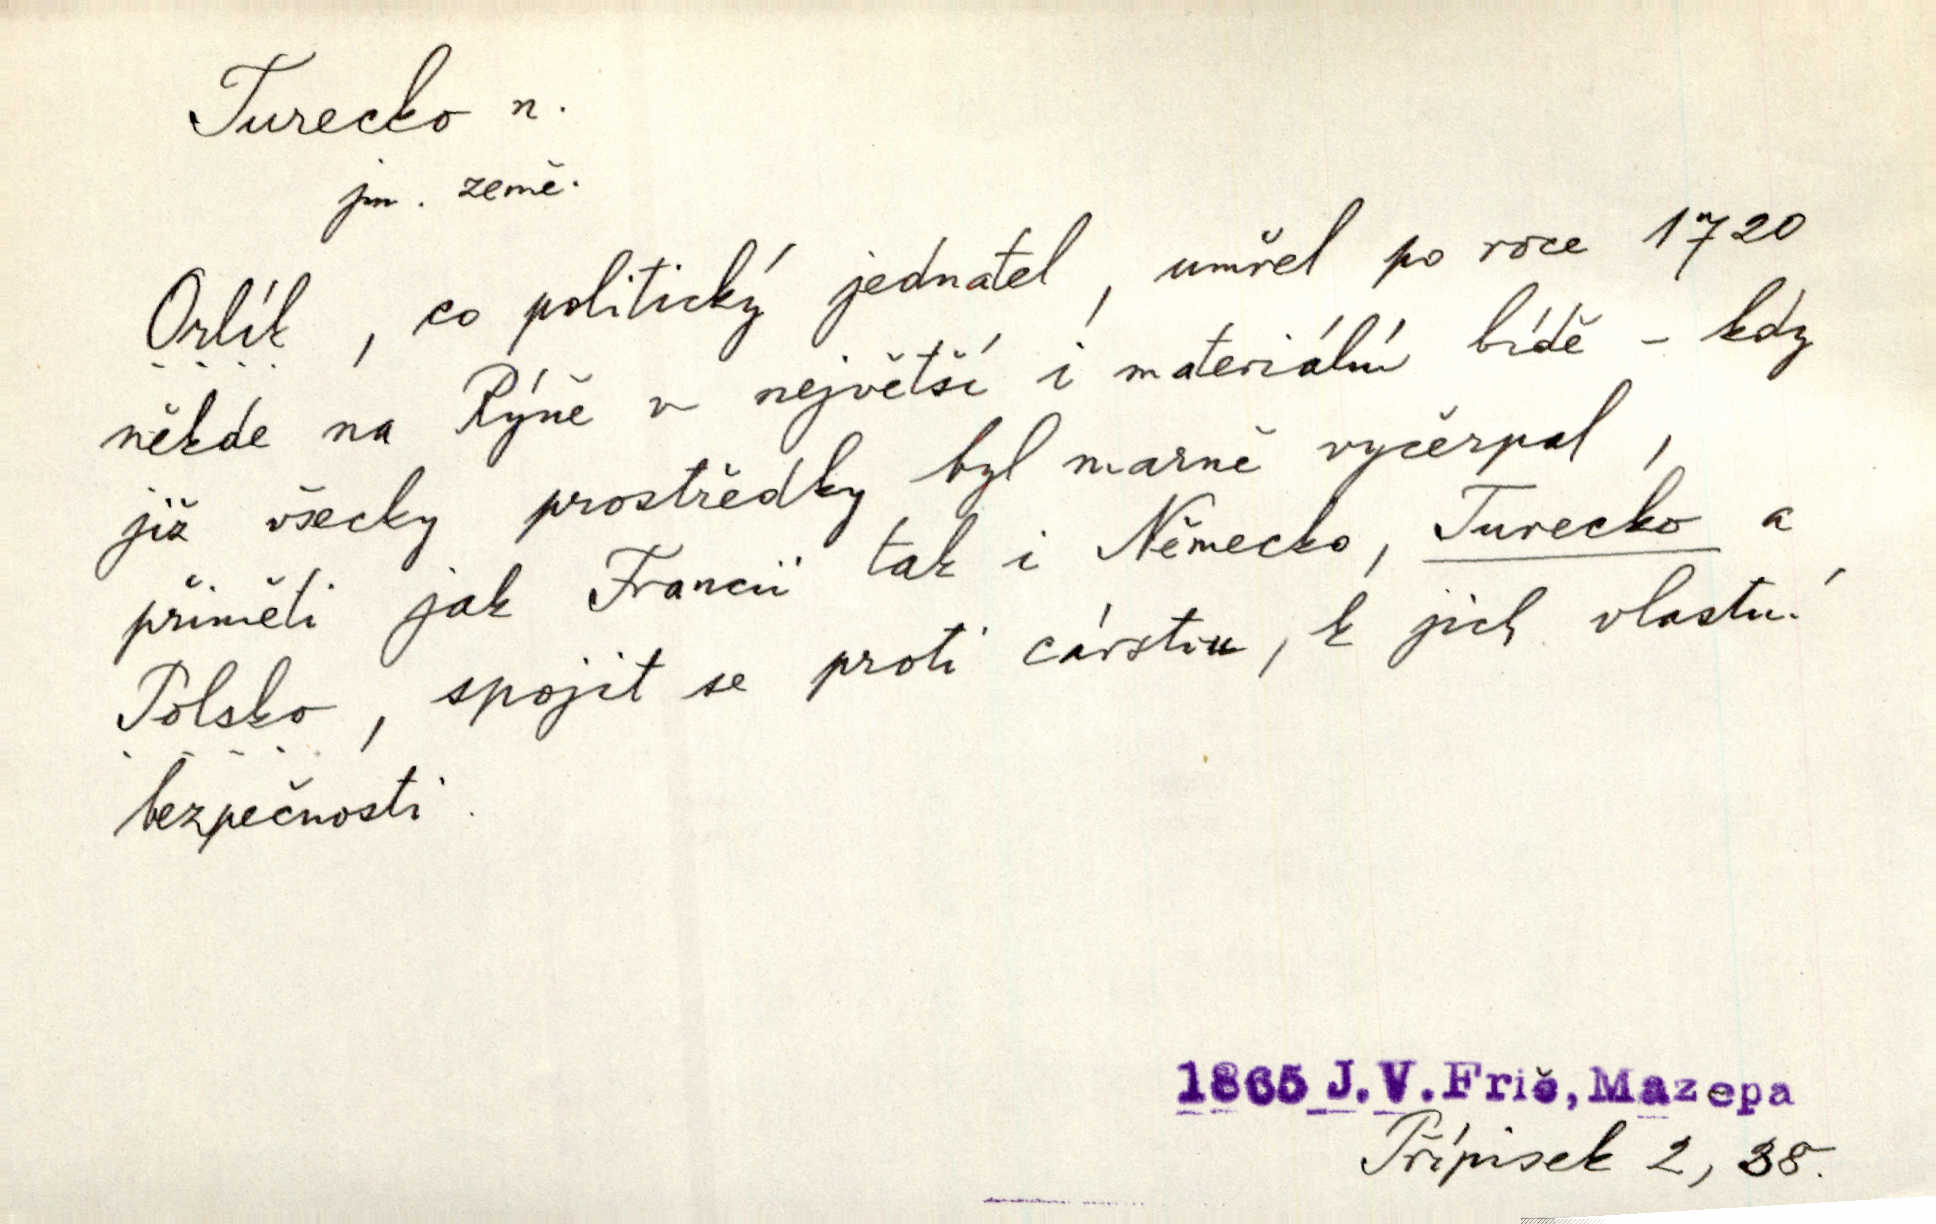 Turecko n.
jm. země.
Orlík, co politický jednatel, umřel po roce 1720
někde na Rýně v největší i materiální bídě - kdy
již všecky prostředky byl marně vyčerpal,
přiměti jak Francii tak i Německo, Turecko a
Polsko, spojit se proti cárstvu, k jich vlastní
bezpečnosti.
1865 J.V.Frič, Mazepa
Přípisek 2, 38.